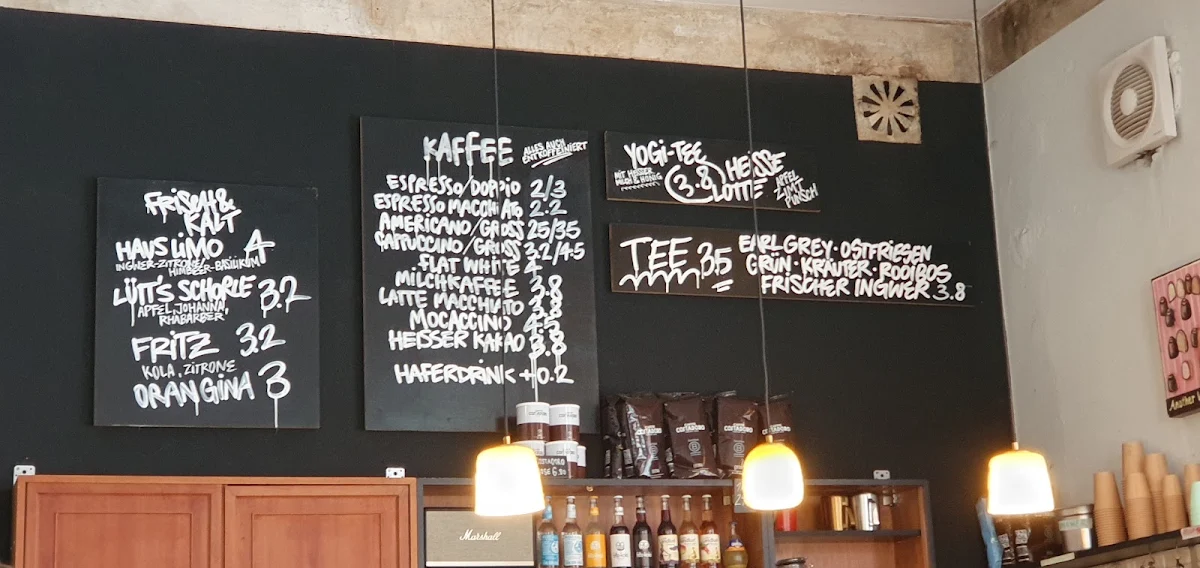 FRISCH &
KALT
HAUS LIMO 4
INGWER-ZITRONE/
HIMBEER-BASILIKUM
LÜTT'S SCHORLE 3.2
APFEL, JOHANNA,
RHABARBER
FRITZ 3.2
KOLA, ZITRONE
ORANGINA 3
KAFFEE ALLES AUCH
ENTKOFFEINIERT
ESPRESSO/DOPPIO 2/3
ESPRESSO MACCHIATO 2.2
AMERICANO/GROSS 25/35
CAPPUCCINO/GROSS 3.2/4.5
FLAT WHITE 4
MILCHKAFFEE 3.8
LATTE MACCHIATO 3.8
MOCACCINO 4.5
HEISSER KAKAO 3.8
HAFERDRINK +0.2
YOGI-TEE
MIT HEISSER
MILCH & HONIG
3.8
HEISSE
LOTTE
APFEL
ZIMT
PUNSCH
TEE 3.5
EARL GREY · OSTFRIESEN
GRÜN · KRÄUTER · ROOIBOS
FRISCHER INGWER 3.8
COSTADORO
Marshall
Another